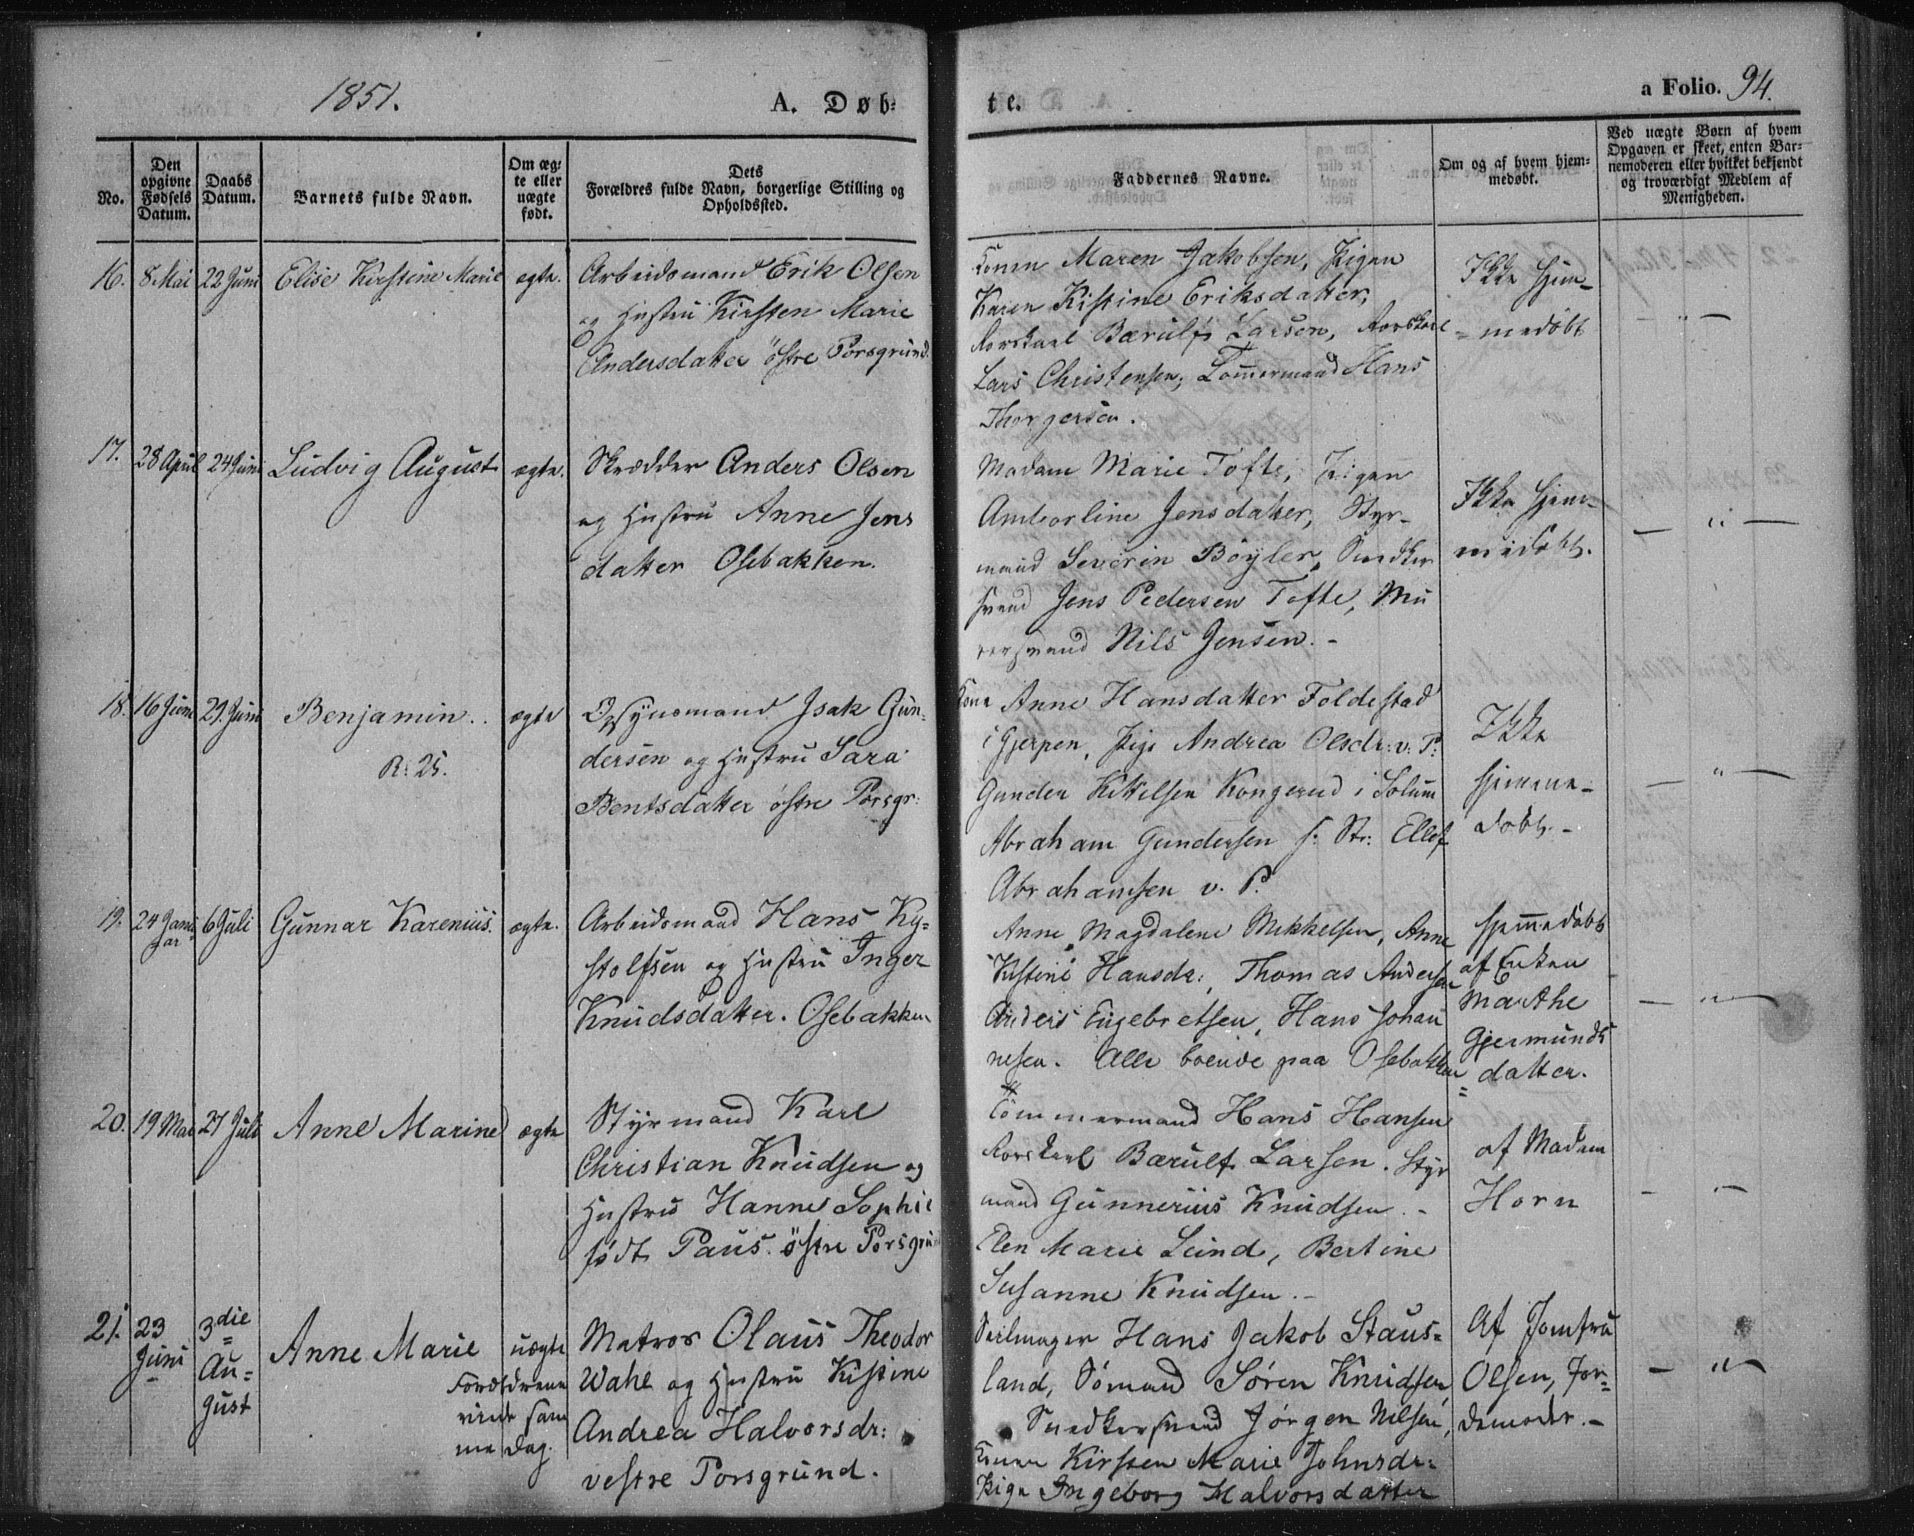 1851.
A. Døb-
te.
a Folio. 94.
No.
Den opgivne Fødsels Datum.
Daabs Datum.
Barnets fulde Navn.
Om ægte eller uægte født.
Dets
Forældres fulde Navn, borgerlige Stilling og
Opholdssted.
Faddernes Navne.
Om og af hvem hjem-
medøbt.
Ved uægte Børn af hvem
Opgaven er skeet, enten Bar-
nemoderen eller hvilket bekjendt
og troværdigt Medlem af
Menigheden.
16. 8 Mai 22 Juni Elise Kirstine Marie ægte.
Arbeidsmand Erik Olsen
og Hustru Kirsten Marie
Andersdatter östre Porsgrund.
Konen Maren Jakobsen, Pigen
Karen Kistine Eriksdatter,
Rorskarl Bærulf Larsen, Rorskarl
Lars Christensen, Tömermand Hans
Thorgersen.
Ikke hjem-
medöbt
- " -
17. 28 April 24 Juni Ludvig August ægte.
Skrædder Anders Olsen
og Hustru Anne Jens
datter Osebakken.
Madam Marie Tofte, Pigen
Jensdatter, Styr-
mand Severin Böyler, Snedker
svend Jens Pedersen Tofte, Mu
rersvend Nils Jensen. -
Ikke hjem-
medöbt.
- " -
18. 16 Juni 29. Juni Benjamin.. ægte
R: 25.
Opsynsmand Isak Gun-
dersen og Hustru Sara
Bentsdatter östre Porsgr:
Kone Anne Hansdatter Foldestad
i Gjerpen, Pige Andrea Olsdr: v. P:
Gunder Kittelsen Kongerud i Solum
Abraham Gundersen s: Str: Ellef
Abrahamsen v. P.
Ikke
hjemme-
döbt. -
- " -
19. 24 Januar 6 Juli Gunnar Karenius. ægte.
Arbeidsmand Hans Ky-
stolfsen og Hustru Inger
Knudsdatter. Osebakken
Anne Magdalene Mikkelsen, Anne
Kistine Hansdr:, Thomas Andersen
Anders Engebretsen, Hans Johan
nesen. Alle boende paa Osebakken
Hjemmedöbt
af Enken
Marthe
Gjermunds
datter.
- " -
20. 19 Mai 27 Juli Anne Marine ægte
Styrmand Karl
Christian Knudsen og
Hustru Hanne Sophie
födt Paus. östre Porsgrund
Tömmermand Hans Hansen
Rorskarl Bærulf Larsen. Styr
mand Gunnerius Knudsen. -
Elen Marie Lund, Bertine
Susanne Knudsen. -
af Madam
Horn
- " -
21. 23 Juni 3die August Anne Marie uægte
Forældrene
viede sam
me Dag.
Matros Olaus Theodor
Wahl og Hustru Kistine
Andrea Halvorsdr:
vestre Porsgrund.
Seilmager Hans Jakob Staus-
land, Sömand Sören Knudsen
Snedkersvend Jörgen Nilsen,
Konen Kirsten Marie Johnsdr:
Pige Ingeborg Halvorsdatter
Af Jomfru
Olsen, Jor-
demoder. -
- " -